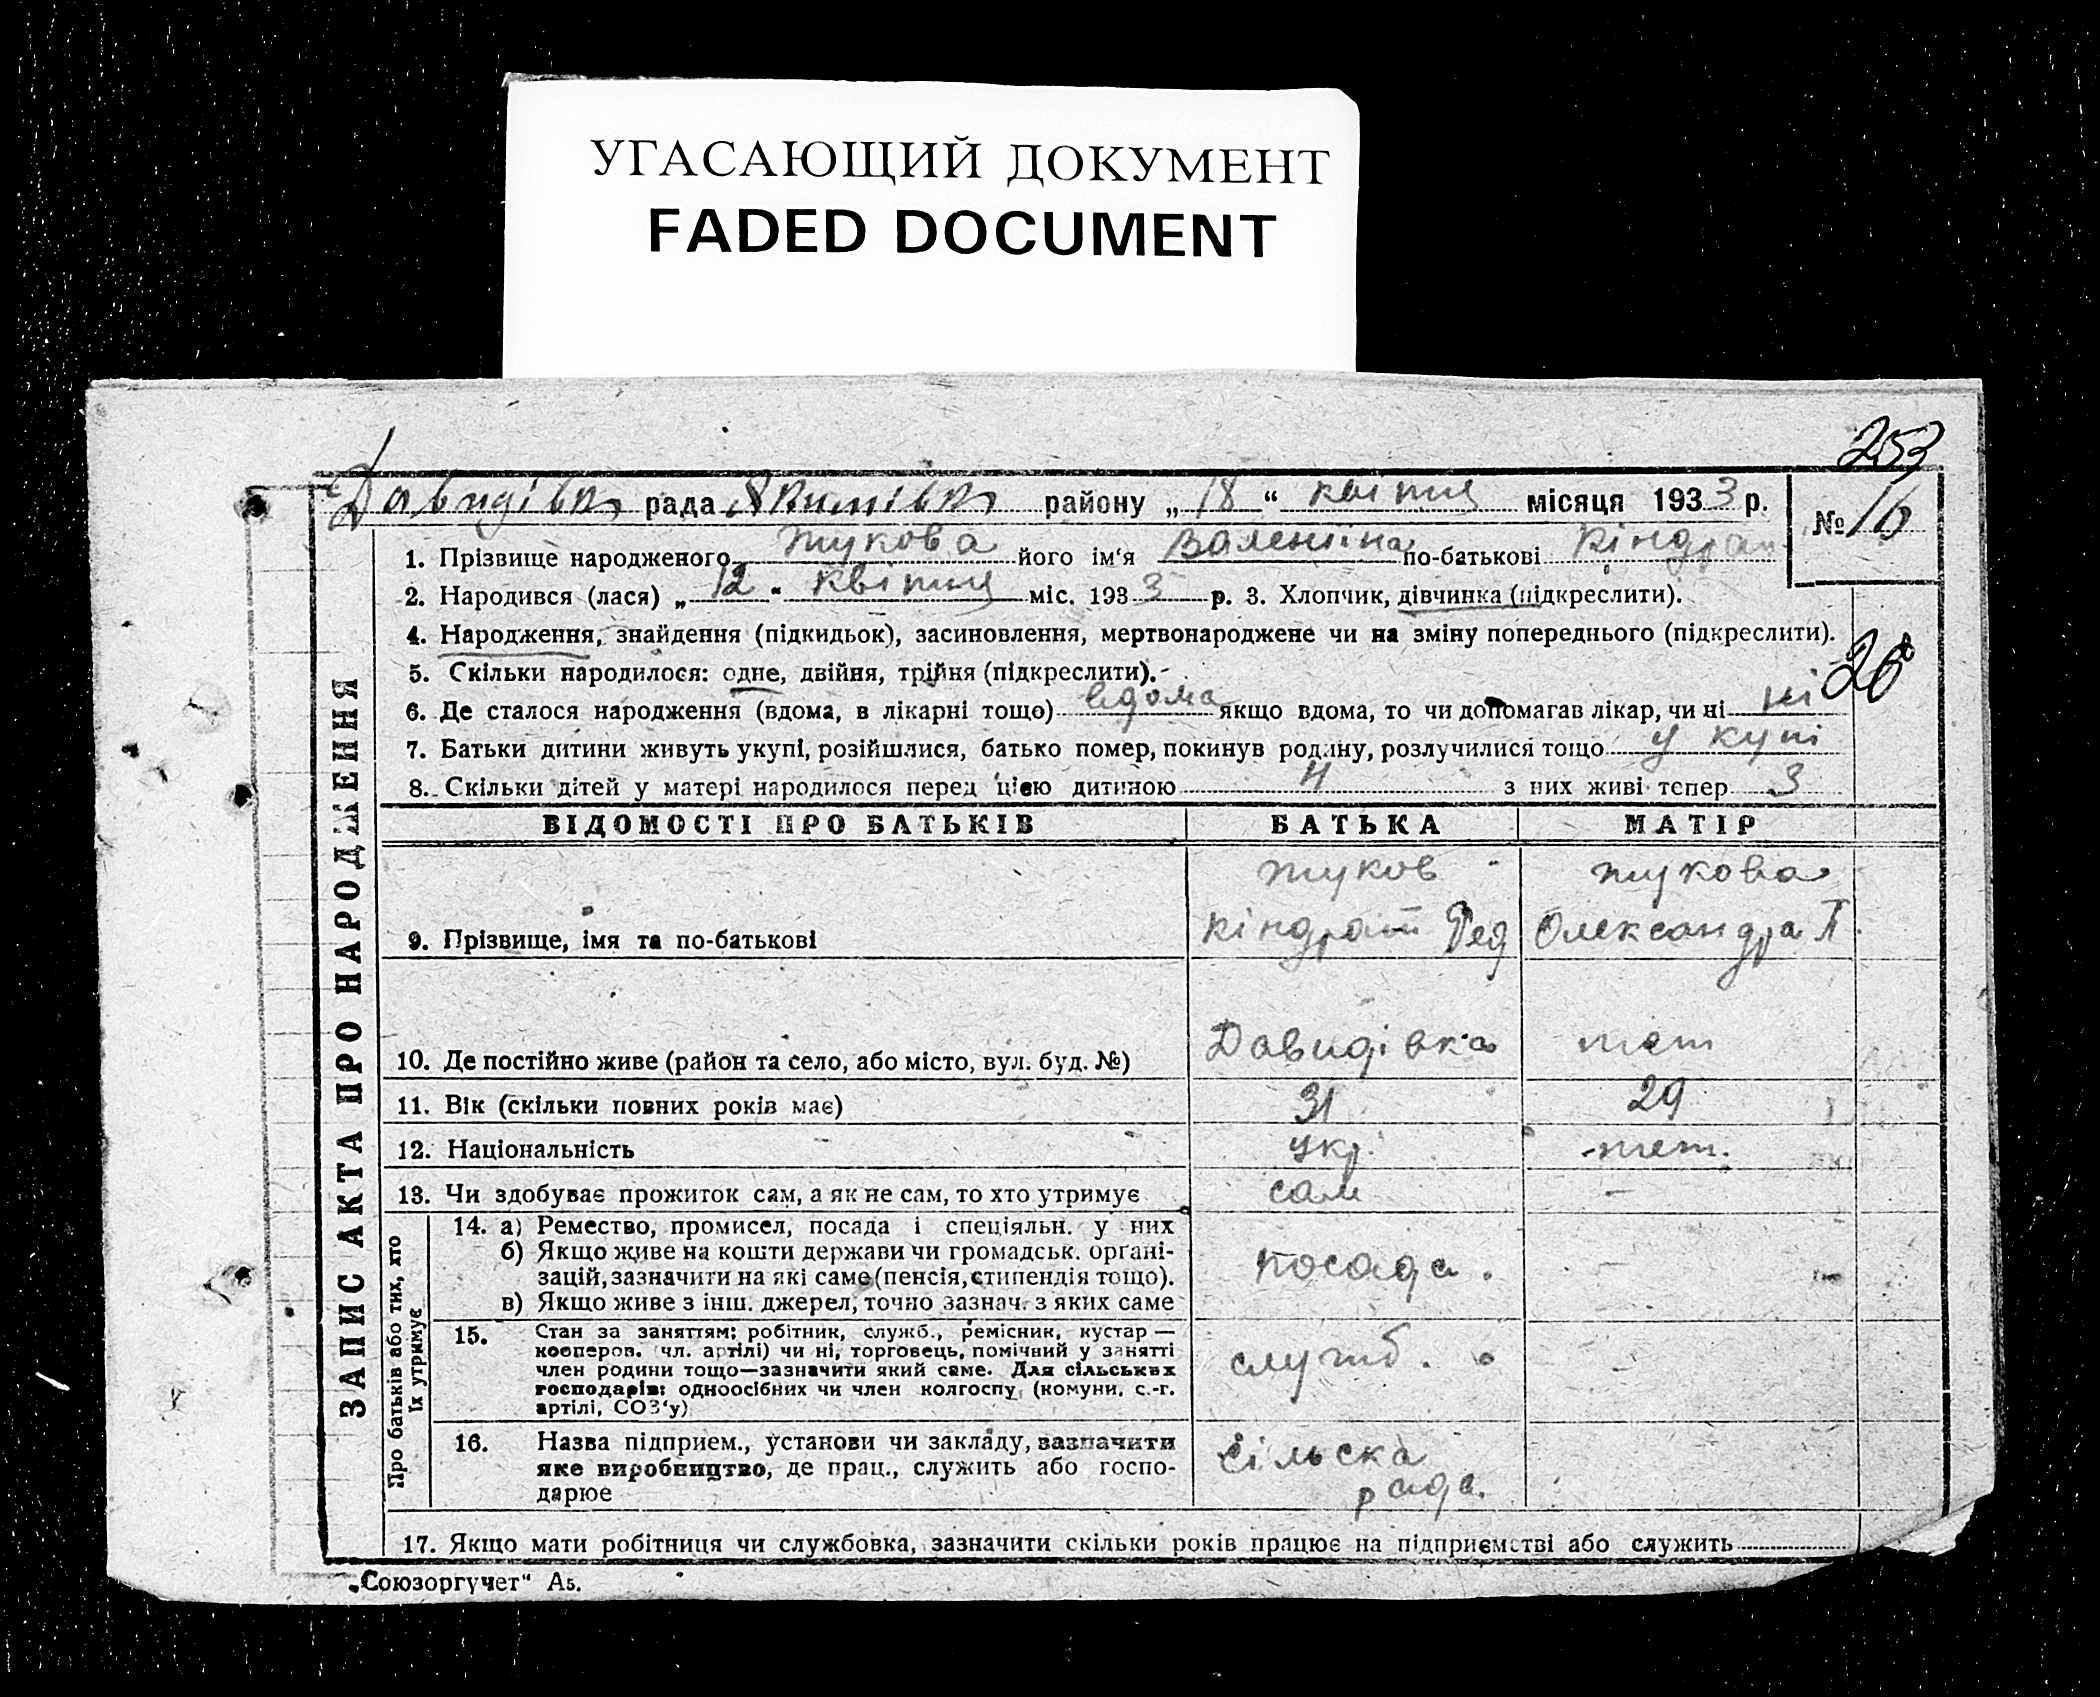 УГАСАЮЩИЙ ДОКУМЕНТ
FADED DOCUMENT
253
Давидівка рада Якимівка району „ 18 “ квітня місяця 1933 р. № 16
1. Прізвище народженого Жукова його ім‘я Валентіна по-батькові Кіндрат
2. Народився (лася) „ 12 “ квітня міс. 1933 р. 3. Хлопчик, дівчинка (підкреслити).
4. Народження, знайдення (підкидьок), засиновлення, мертвонароджене чи на зміну попереднього (підкреслити).
5. Скільки народилося: одне, двійня, трійня (підкреслити).
26
6. Де сталося народження (вдома, в лікарні тощо) вдома якщо вдома, то чи допомагав лікар, чи ні ні
7. Батьки дитини живуть укупі, розійшлися, батько помер, покинув родину, розлучилися тощо у купі
8. Скільки дітей у матері народилося перед цією дитиною 4 з них живі тепер 3
ЗАПИС АКТА ПРО НАРОДЖЕННЯ
ВІДОМОСТІ ПРО БАТЬКІВ БАТЬКА МАТІР
Жуков Жукова
9. Прізвище, імя та по-батькові Кіндрат Фед Олександра П.
10. Де постійно живе (район та село, або місто, вул. буд. №) Давидівка теж
11. Вік (скільки повних років має) 31 29
12. Національність укр. теж.
13. Чи здобуває прожиток сам, а як не сам, то хто утримує сам –
Про батьків або тих, хто
їх утримує
14. а) Ремество, промисел, посада і спеціяльн. у них
б) Якщо живе на кошти держави чи громадськ. органі-
зацій, зазначити на які саме (пенсія, стипендія тощо). посада. –
в) Якщо живе з інш. джерел, точно зазнач. з яких саме
15. Стан за заняттям: робітник, служб., ремісник, кустар —
кооперов. (чл. артілі) чи ні, торговець, помічний у занятті
член родини тощо—зазначити який саме. Для сільських служб. –
господарів: одноосібних чи член колгоспу (комуни, с.-г.
артілі, СОЗ‘у)
16. Назва підприєм., установи чи закладу, зазначити сільска
яке виробництво, де прац., служить або госпо- рада.
дарює
17. Якщо мати робітниця чи службовка, зазначити скільки років працює на підприємстві або служить
„Союзоргучет“ А5.